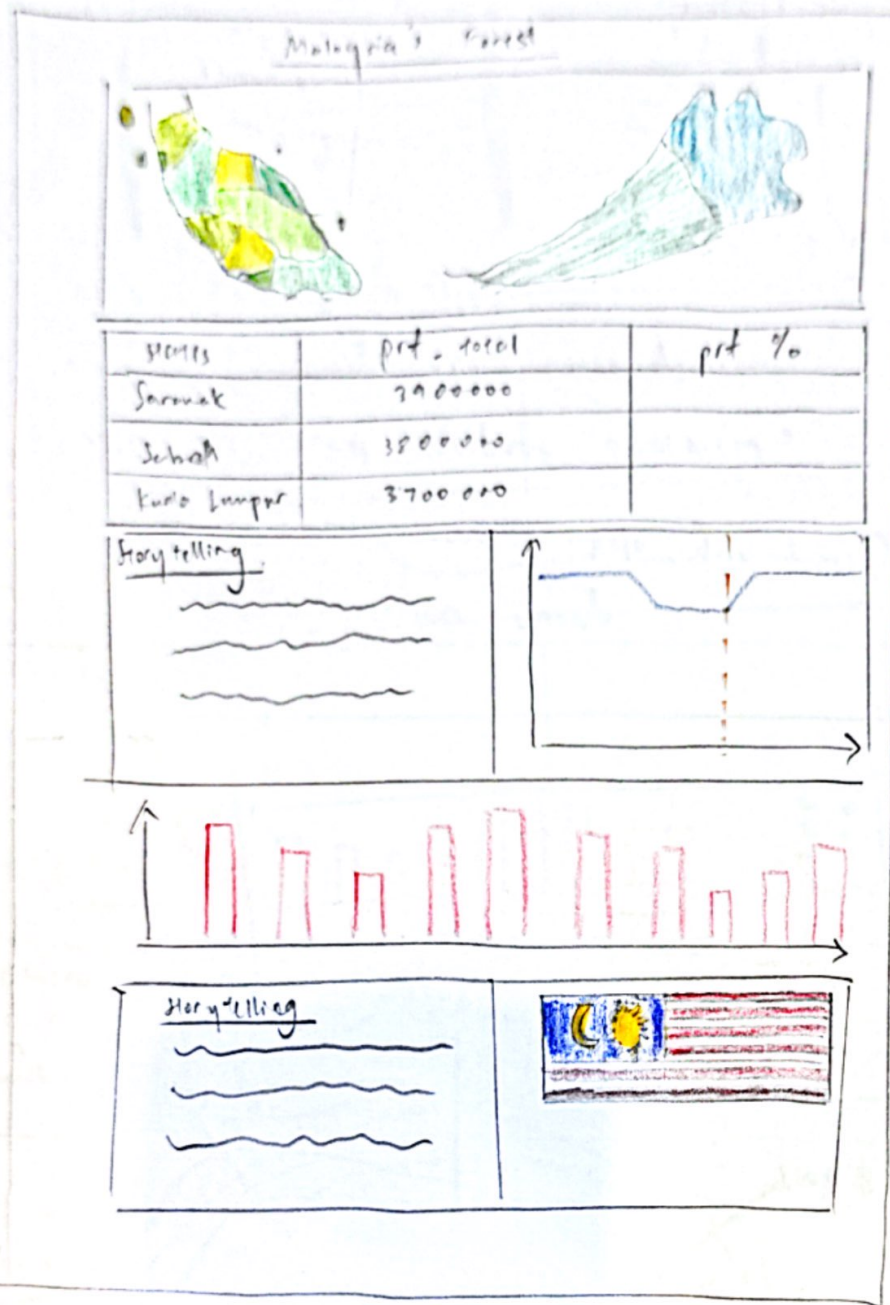 Malaysia's Forest
states prf. total prf %
Sarawak 3900000
Sabah 3800000
Kuala Lumpur 3700000
Storytelling.
Storytelling